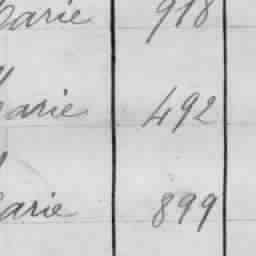 Marie 918
Marie 492
Marie 899